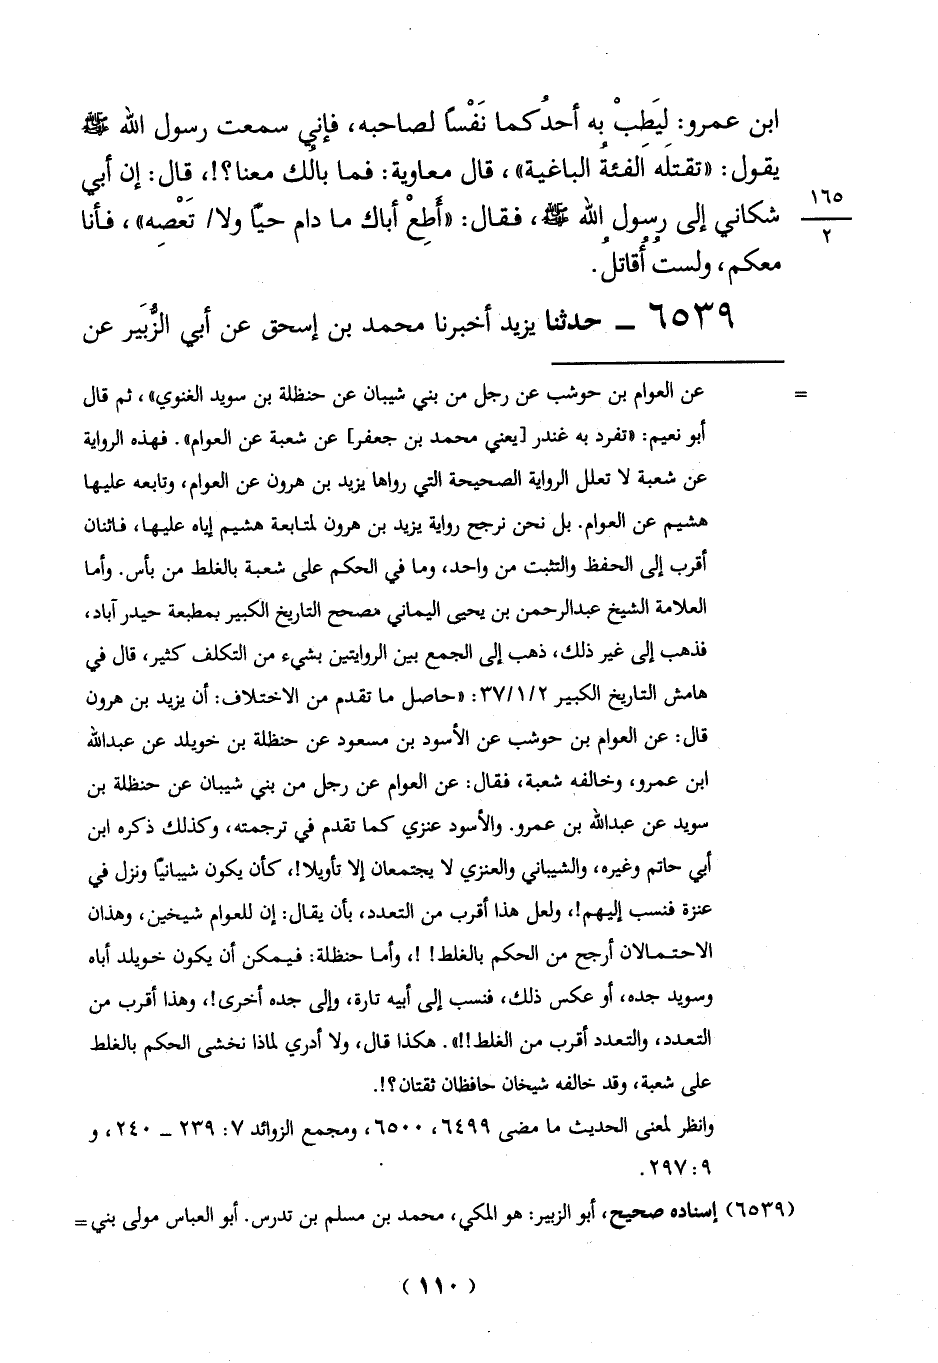 ابن عمرو: لِيَطِبْ به أحدُكما نَفْساً لصاحبه، فإني سمعت رسول الله ﷺ
يقول: «تقتله الفئةُ الباغية»، قال معاوية: فما بالك معنا؟!، قال: إن أبي
شكاني إلى رسول الله ﷺ، فقال: «أَطِعْ أباك ما دام حياً ولا/ تَعْصِه»، فأنا
١٦٥
٢
معكم، ولستُ أُقاتلُ.
٦٥٣٩ ــ حدثنا يزيد أخبرنا محمد بن إسحق عن أبي الزُّبَير عن
= عن العوام بن حوشب عن رجل من بني شيبان عن حنظلة بن سويد الغنوي»، ثم قال
أبو نعيم: «تفرد به غندر [يعني محمد بن جعفر] عن شعبة عن العوام». فهذه الرواية
عن شعبة لا تعلل الرواية الصحيحة التي رواها يزيد بن هرون عن العوام، وتابعه عليها
هشيم عن العوام. بل نحن نرجح رواية يزيد بن هرون لمتابعة هشيم إياه عليها، فاثنان
أقرب إلى الحفظ والتثبت من واحد، وما في الحكم على شعبة بالغلط من بأس. وأما
العلامة الشيخ عبدالرحمن بن يحيى اليماني مصحح التاريخ الكبير بمطبعة حيدر آباد،
فذهب إلى غير ذلك، ذهب إلى الجمع بين الروايتين بشيء من التكلف كثير، قال في
هامش التاريخ الكبير ٣٧/١/٢: «حاصل ما تقدم من الاختلاف: أن يزيد بن هرون
قال: عن العوام بن حوشب عن الأسود بن مسعود عن حنظلة بن خويلد عن عبدالله
ابن عمرو، وخالفه شعبة، فقال: عن العوام عن رجل من بني شيبان عن حنظلة بن
سويد عن عبدالله بن عمرو. والأسود عنزي كما تقدم في ترجمته، وكذلك ذكره ابن
أبي حاتم وغيره، والشيباني والعنزي لا يجتمعان إلا تأويلا!، كأن يكون شيبانيا ونزل في
عنزة فنسب إليهم!، ولعل هذا أقرب من التعدد، بأن يقال: إن للعوام شيخين، وهذان
الاحتمالان أرجح من الحكم بالغلط! !، وأما حنظلة: فيمكن أن يكون خويلد أباه
وسويد جده، أو عكس ذلك، فنسب إلى أبيه تارة، وإلى جده أخرى!، وهذا أقرب من
التعدد، والتعدد أقرب من الغلط!!». هكذا قال، ولا أدري لماذا نخشى الحكم بالغلط
على شعبة، وقد خالفه شيخان حافظان ثقتان؟!.
وانظر لمعنى الحديث ما مضى ٦٤٩٩، ٦٥٠٠، ومجمع الزوائد ٧: ٢٣٩ ــ ٢٤٠، و
٩: ٢٩٧.
(٦٥٣٩) إسناده صحيح، أبو الزبير: هو المكي، محمد بن مسلم بن تدرس. أبو العباس مولى بني =
(١١٠)